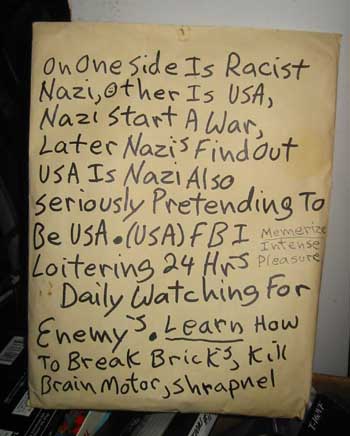 On One Side Is Racist
Nazi, Other Is USA,
Nazi Start A War,
Later Nazi's Find Out
USA Is Nazi Also
Seriously Pretending To
Be USA. (USA) FBI
Memerize
Intense
Pleasure
Loitering 24 Hrs
Daily Watching For
Enemy's. Learn How
To Break Brick's, Kill
Brain Motor, Shrapnel